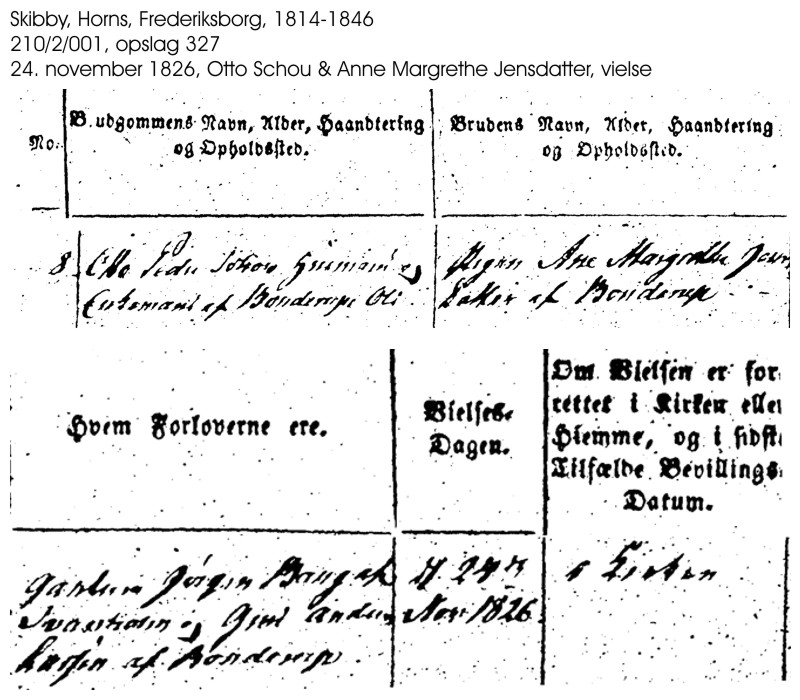 Skibby, Horns, Frederiksborg, 1814-1846
210/2/001, opslag 327
24. november 1826, Otto Schou & Anne Margrethe Jensdatter, vielse
No.
B.udgommens Navn, Alder, Haandtering
og Opholdssted.
Brudens Navn, Alder, Haandtering
og Opholdssted.
8. Otto Schou Huusmand og
Enkemand af Bonderup
Pigen Ane Margrethe Jens
Datter af Bonderup
Hvem Forloverne ere.
Vielses-
Dagen.
Om Vielsen er for
rettet i Kirken eller
Hiemme, og i sidst
Tilfælde Bevillings
Datum.
Jørgen af
og Anders
Larsen af Bonderup
d. 24de
Nov. 1826.
i Kirken